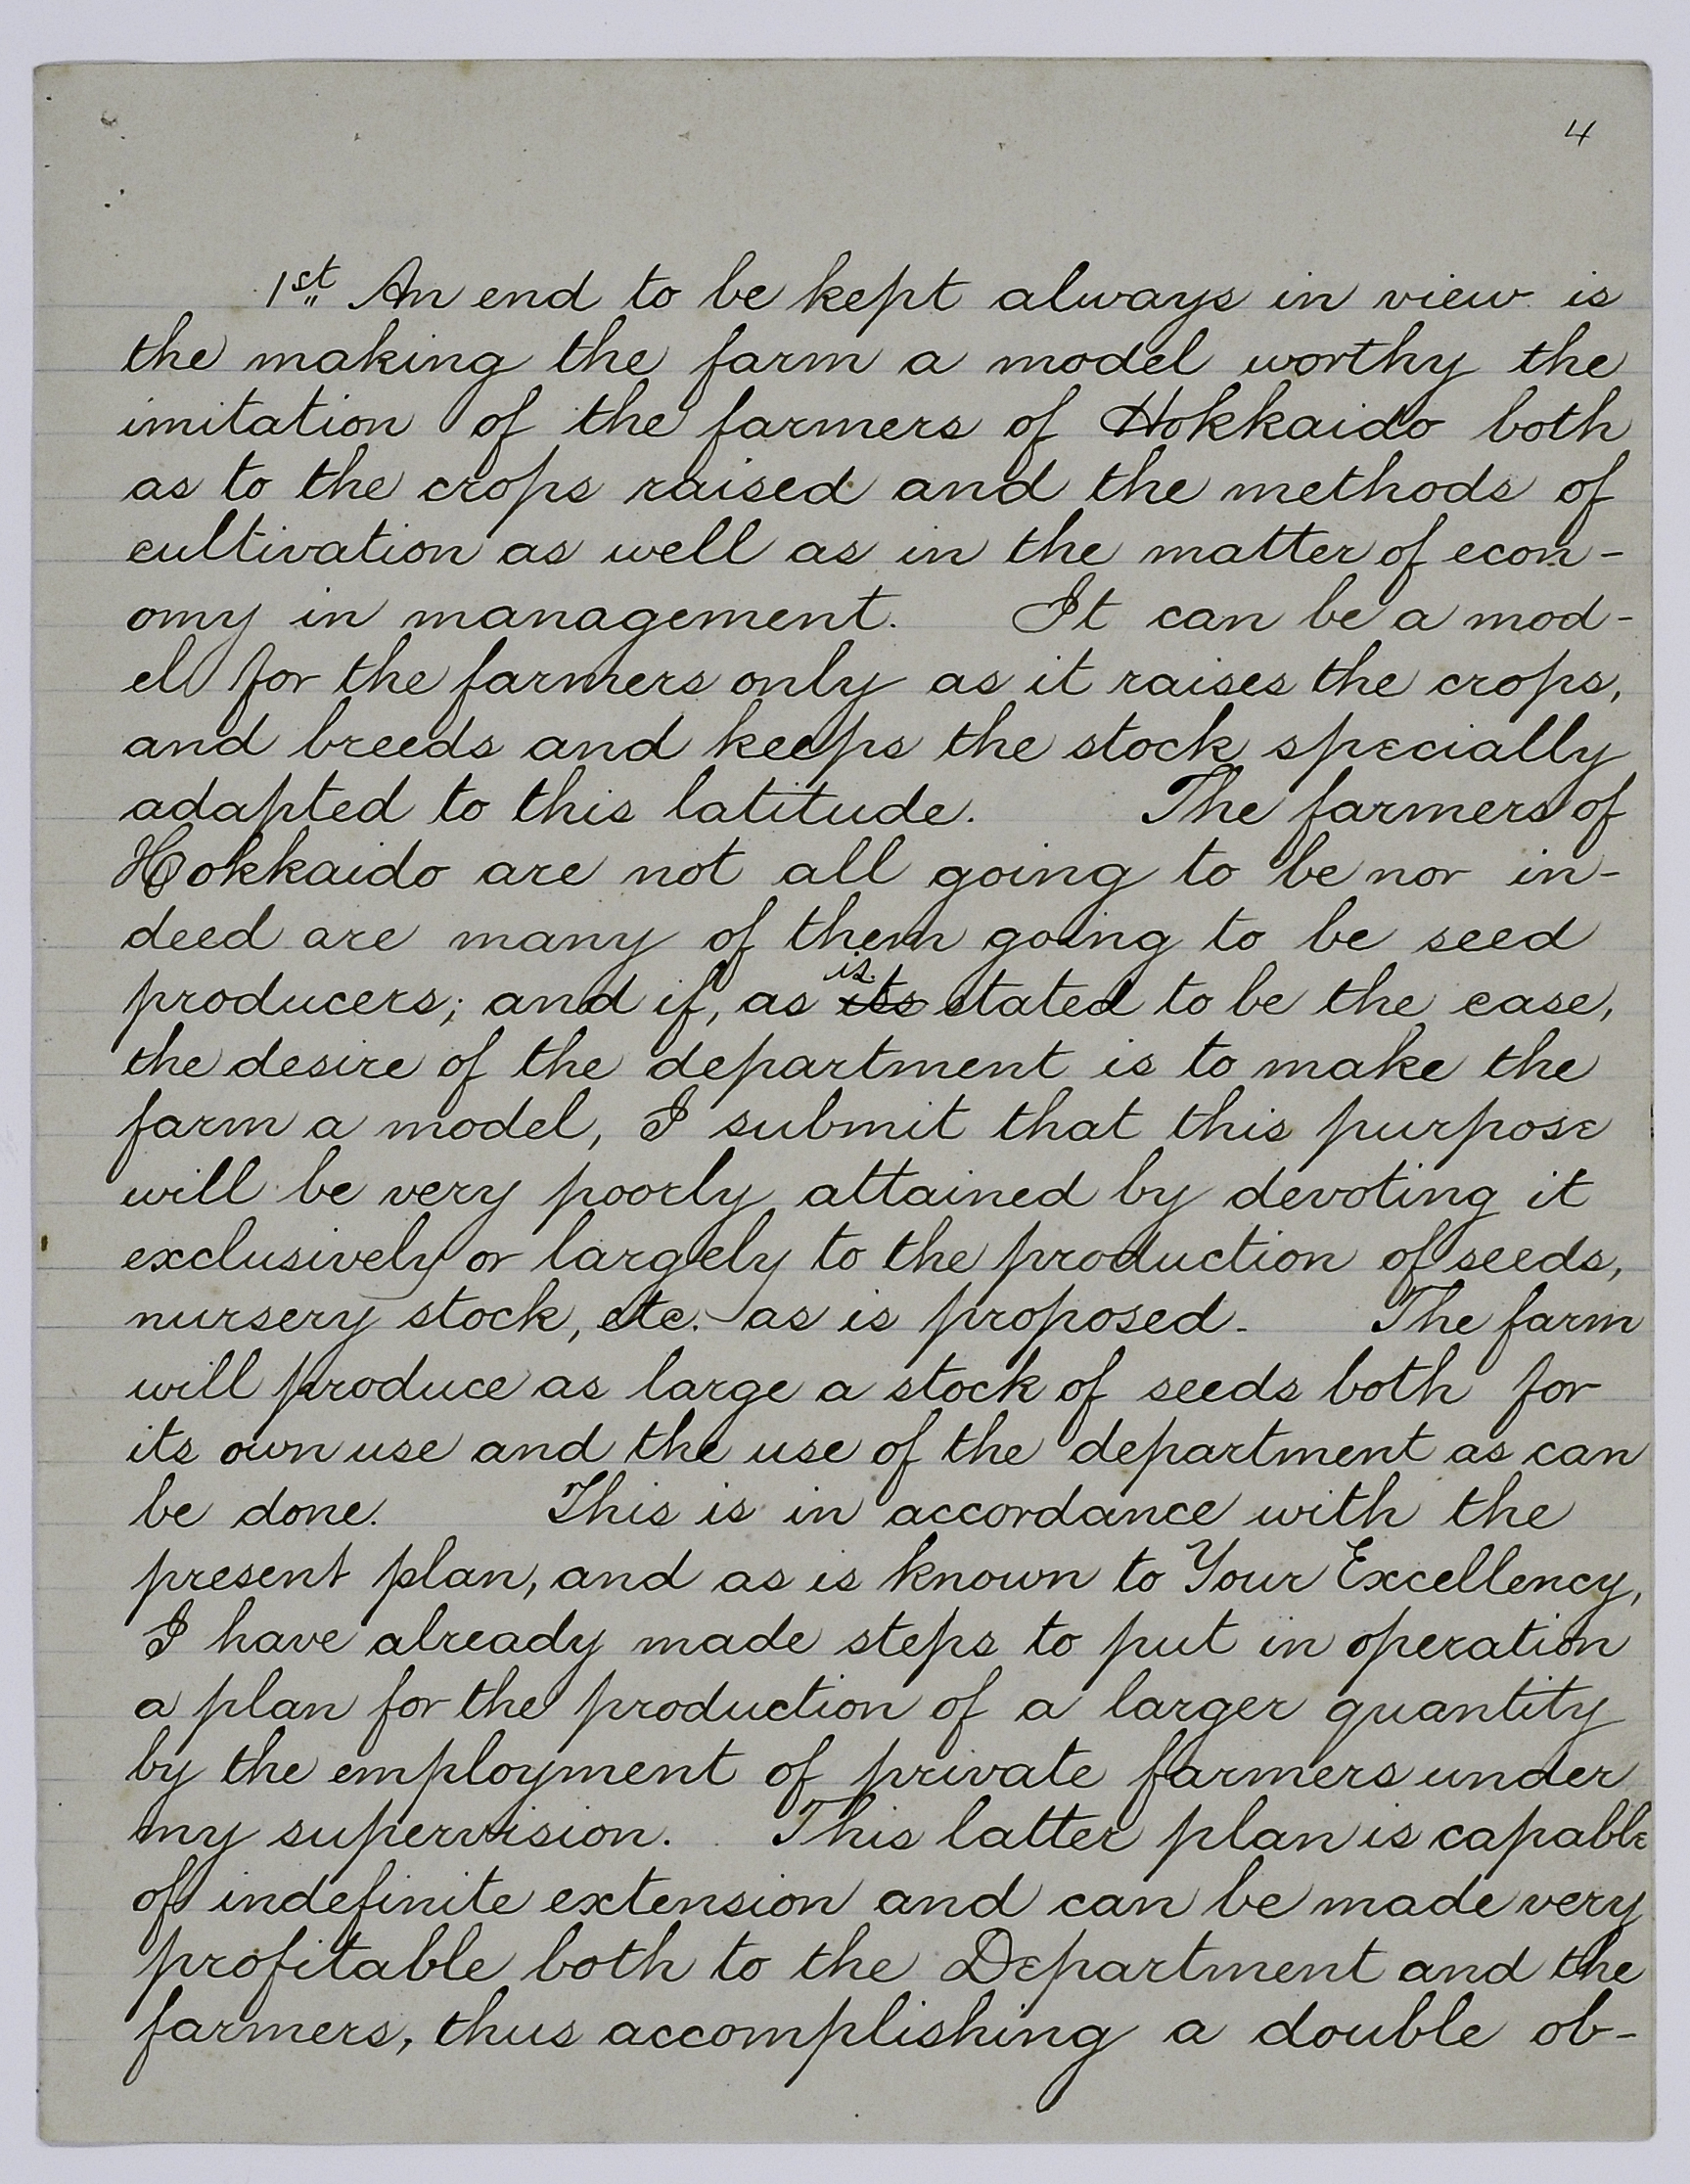 4
1st An end to be kept always in view is
the making the farm a model worthy the
imitation of the farmers of Hokkaido both
as to the crops raised and the methods of
cultivation as well as in the matter of econ-
omy in management. It can be a mod-
el for the farmers only as it raises the crops,
and breeds and keeps the stock specially
adapted to this latitude. The farmers of
Hokkaido are not all going to be nor in-
deed are many of them going to be seed
is
producers; and if, as its stated to be the case,
the desire of the department is to make the
farm a model, I submit that this purpose
will be very poorly attained by devoting it
exclusively or largely to the production of seeds,
nursery stock, etc. as is proposed. The farm
will produce as large a stock of seeds both for
its own use and the use of the department as can
be done. This is in accordance with the
present plan, and as is known to Your Excellency,
I have already made steps to put in operation
a plan for the production of a larger quantity
by the employment of private farmers under
my supervision. This latter plan is capable
of indefinite extension and can be made very
profitable both to the Department and the
farmers, thus accomplishing a double ob-